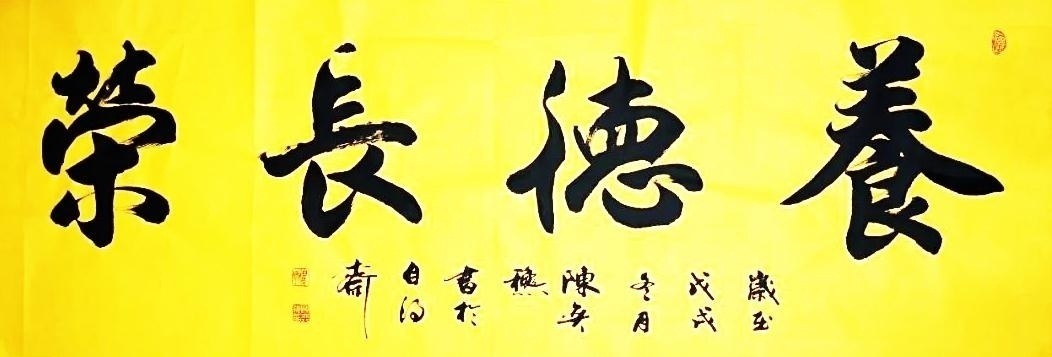 養德長榮
歲至
戊戌
冬月
陳奐
懋
書於
自得
齋